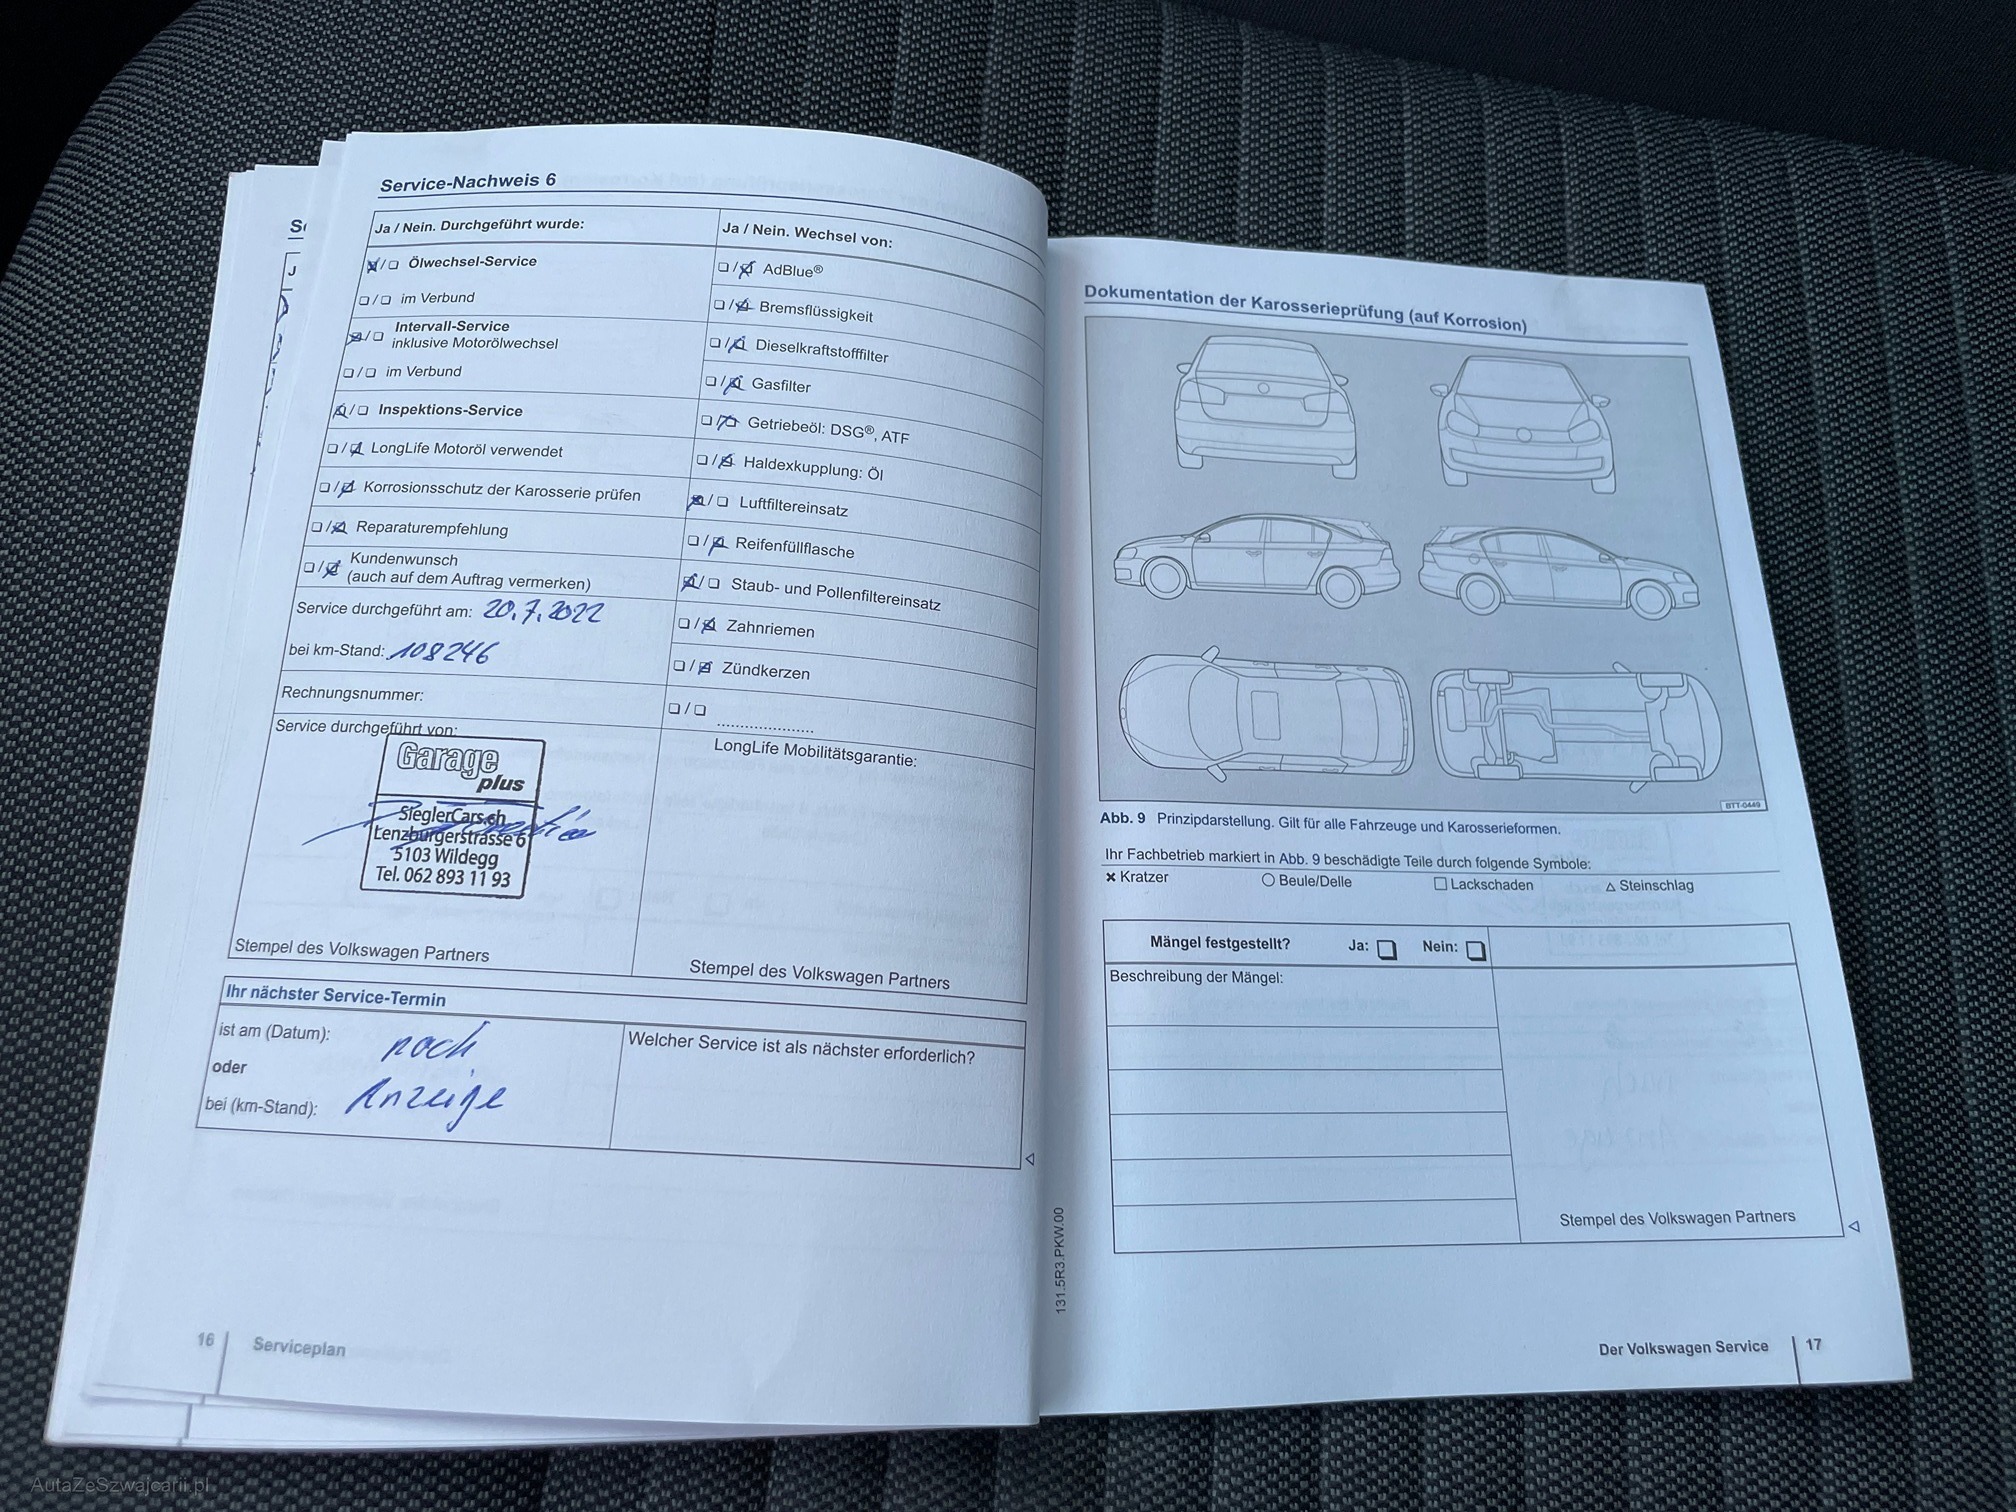 Service-Nachweis 6
Ja / Nein. Durchgeführt wurde:
Ölwechsel-Service
im Verbund
Intervall-Service
inklusive Motorölwechsel
im Verbund
Inspektions-Service
LongLife Motoröl verwendet
Korrosionsschutz der Karosserie prüfen
Reparaturempfehlung
Kundenwunsch
(auch auf dem Auftrag vermerken)
Service durchgeführt am: 20.7.2022
bei km-Stand: 108246
Rechnungsnummer:
Service durchgeführt von:
Garage
plus
SieglerCars.ch
Lenzburgerstrasse 6
5103 Wildegg
Tel. 062 893 11 93
Stempel des Volkswagen Partners
Ja / Nein. Wechsel von:
AdBlue®
Bremsflüssigkeit
Dieselkraftstofffilter
Gasfilter
Getriebeöl: DSG®, ATF
Haldexkupplung: Öl
Luftfiltereinsatz
Reifenfüllflasche
Staub- und Pollenfiltereinsatz
Zahnriemen
Zündkerzen
LongLife Mobilitätsgarantie:
Stempel des Volkswagen Partners
Ihr nächster Service-Termin
ist am (Datum): noch
oder
bei (km-Stand): Anzeige
Welcher Service ist als nächster erforderlich?
16 Serviceplan
131.5R3.PKW.00
Dokumentation der Karosserieprüfung (auf Korrosion)
BTT-0449
Abb. 9 Prinzipdarstellung. Gilt für alle Fahrzeuge und Karosserieformen.
Ihr Fachbetrieb markiert in Abb. 9 beschädigte Teile durch folgende Symbole:
× Kratzer ○ Beule/Delle □ Lackschaden △ Steinschlag
Mängel festgestellt? Ja: Nein:
Beschreibung der Mängel:
Stempel des Volkswagen Partners
Der Volkswagen Service 17
AutaZeSzwajcarii.pl